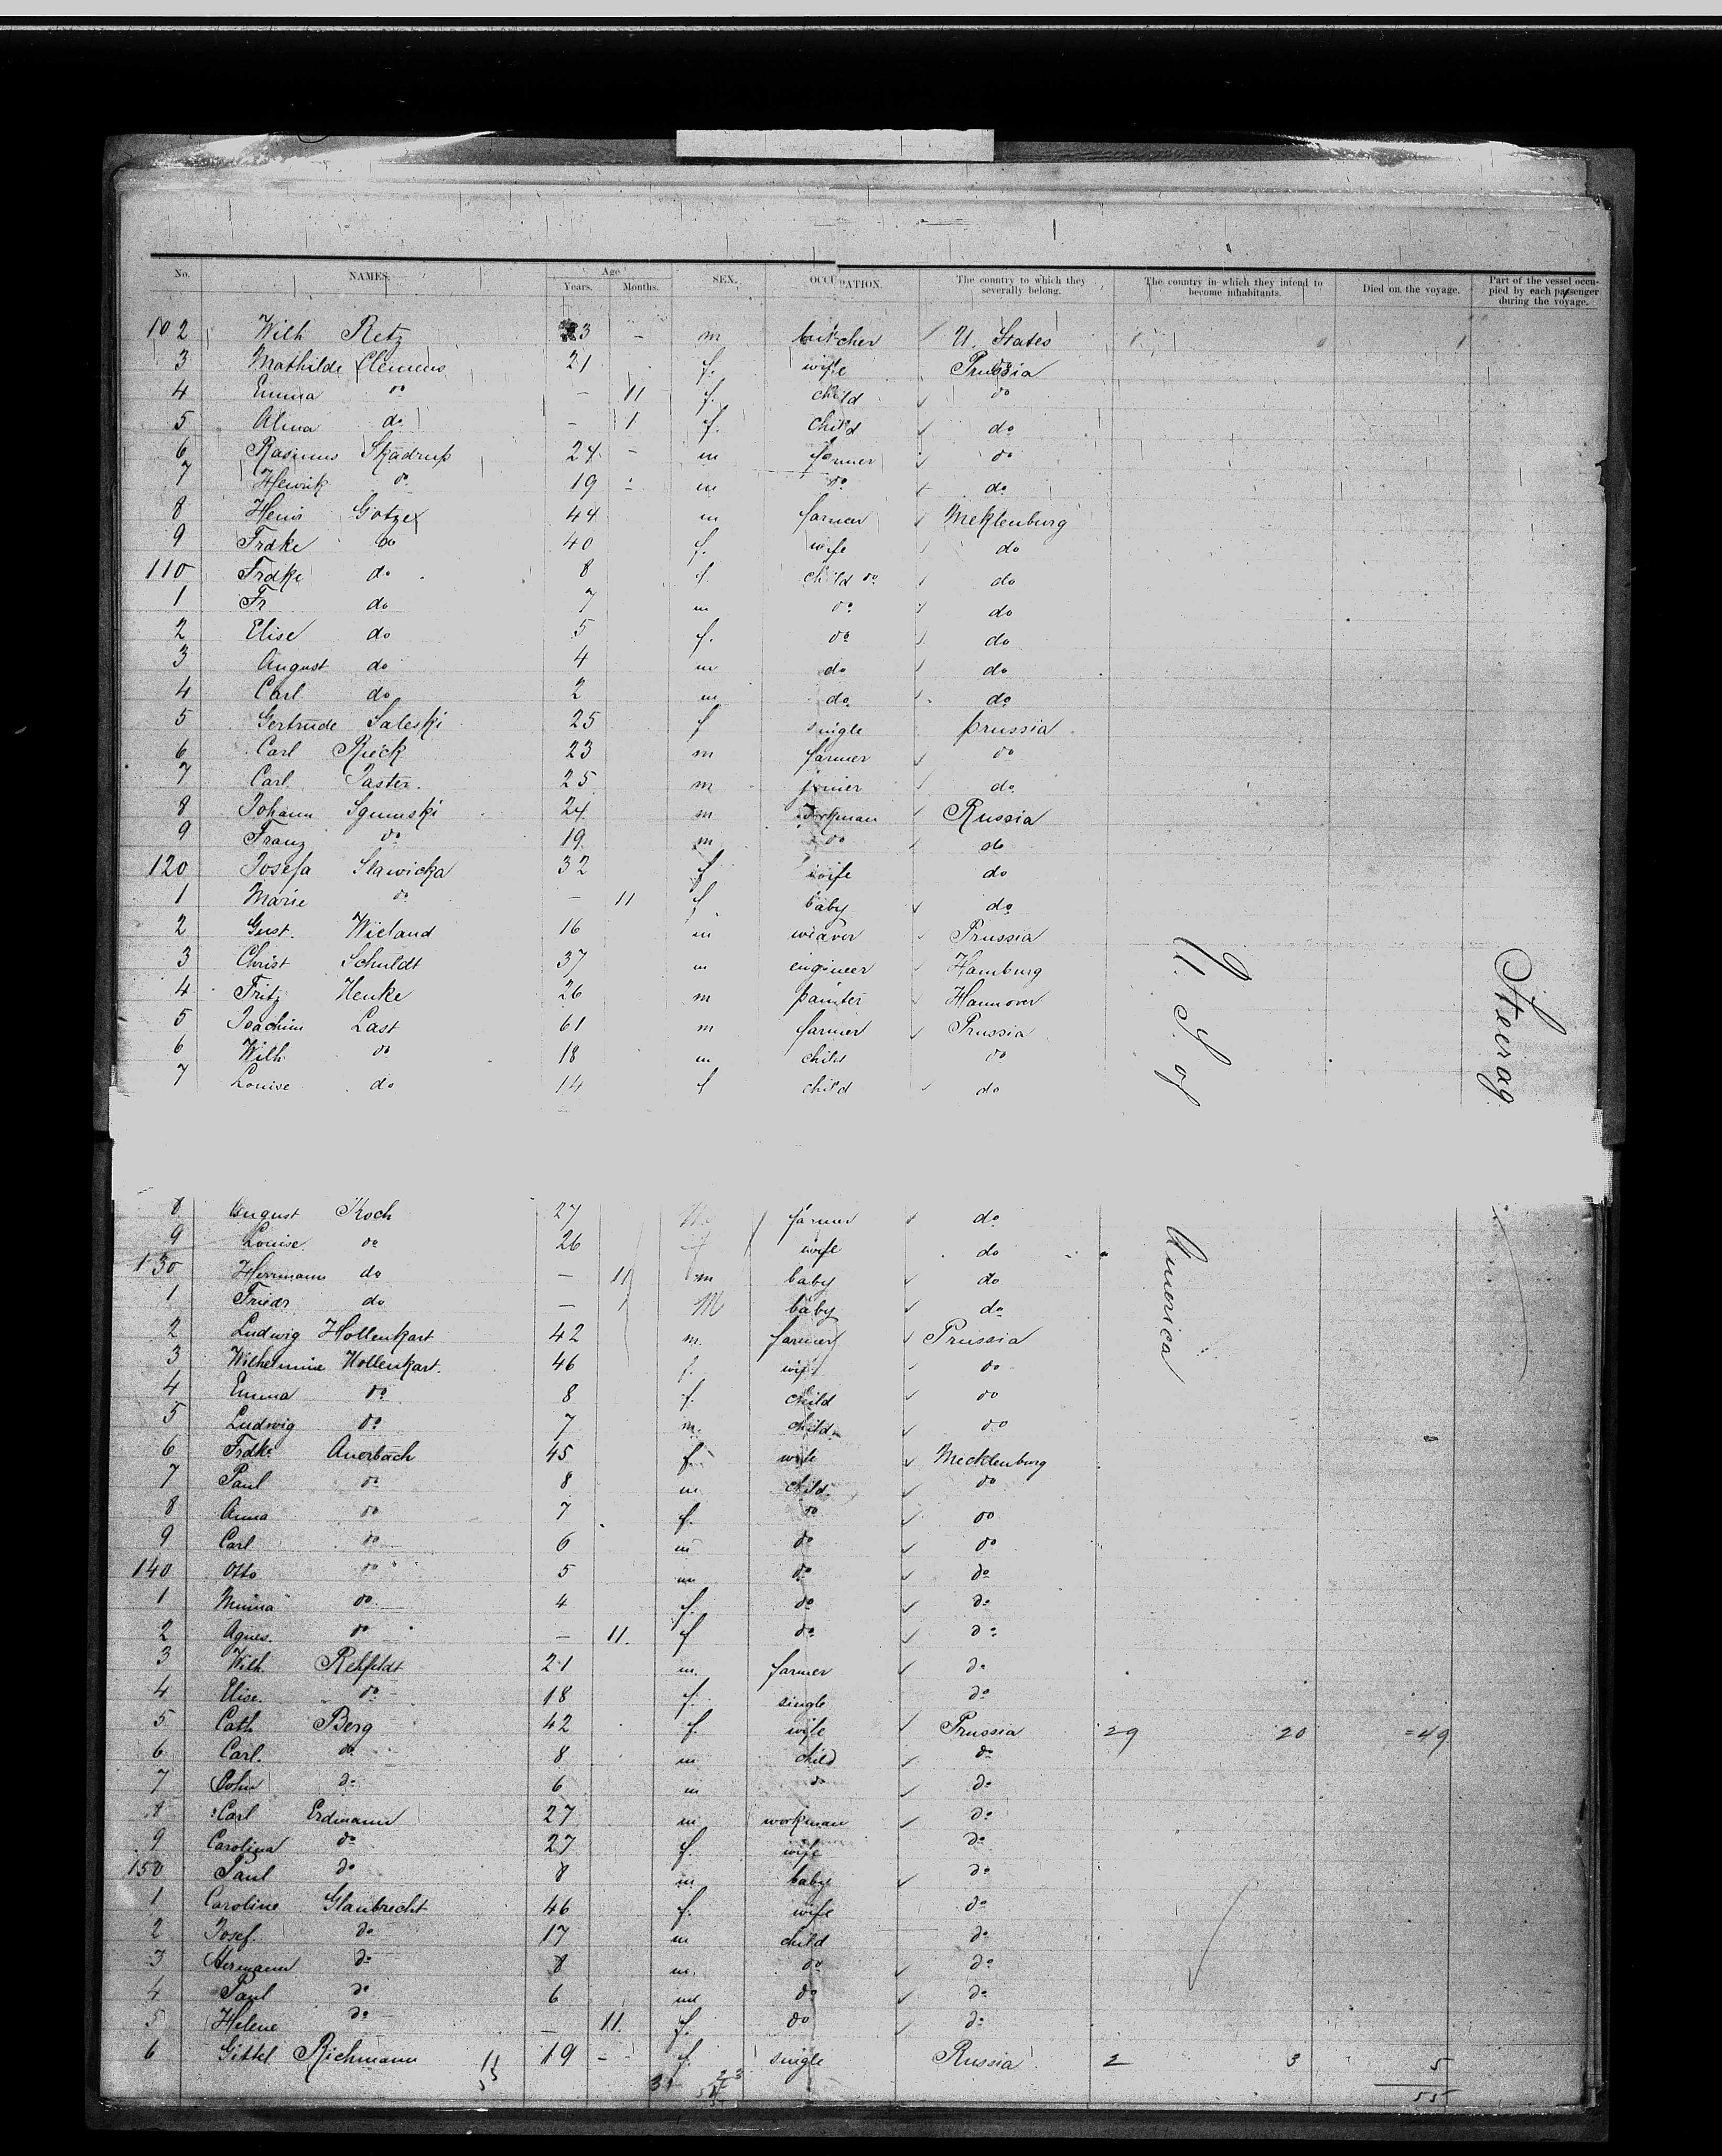 No. NAMES. Age Years. Months. SEX. OCCUPATION. The country to which they severally belong. The country in which they intend to become inhabitants. Died on the voyage. Part of the vessel occupied by each passenger during the voyage.
102 Wilh Retz 23 - m butcher U. States
3 Mathilde Clemens 21 f. wife Prussia
4 Emma do - 11 f. child do
5 Alma do - 1 f. child do
6 Rasmus Skadrup 24 - m farmer do
7 Henrik do 19 - m do do
8 Götze 44 m farmer Meklenburg
9 Frdke do 40 f. wife do
110 Frdke do 8 f. child do do
1 Fr do 7 m do do
2 Elise do 5 f. do do
3 August do 4 m do do
4 Carl do 2 m do do
5 Gertrude Saleski 25 f single prussia
6 Carl Rieck 23 m farmer do
7 Carl Paster 25 m joiner do
8 Johann 24 m workman Russia
9 Franz do 19 m do do
120 Josefa Slawicka 32 f wife do
1 Marie do - 11 f baby do
2 Gust. Wieland 16 m weaver Prussia
3 Christ Schuldt 37 m engineer Hamburg
4 Fritz Henke 26 m painter Hannover
5 Joachim Last 61 m farmer Prussia
6 Wilh do 18 m child do
7 Louise do 14 f child do
U. S. of America
Steerag
8 August Koch 27 m farmer do
9 Louise do 26 f wife do
130 Herrmann do - 11 m baby do
1 Friedr do - 1 M baby do
2 Ludwig Hollenkart 42 m. farmer Prussia
3 Wilhelmine Hollenkart. 46 f. wife do
4 Emma do 8 f. child do
5 Ludwig do 7 m. child do
6 Frdke Auerbach 45 f wife Mecklenburg
7 Paul do 8 m child do
8 Anna do 7 f. do do
9 Carl do 6 m do do
140 Otto do 5 m do do
1 Minna do 4 f. do do
2 Agnes. do - 11. f do do
3 Wilh. Rehfeldt 21 m. farmer do
4 Elise. do 18 f. single do
5 Cath Berg 42 f. wife Prussia 29 20 =49
6 Carl. do 8 m child do
7 John do 6 m do do
8 Carl Erdmann 27 m workman do
9 Carolina do 27 f. wife do
150 Paul do 8 m baby do
1 Caroline Glaubrecht 46 f. wife do
2 Josef. do 17 m child do
3 Hermann do 8 m. do do
4 Paul do 6 m do do
5 Helene do - 11. f. do do
6 Gittel Richmann 19 - f. single Russia 2 3 5
55